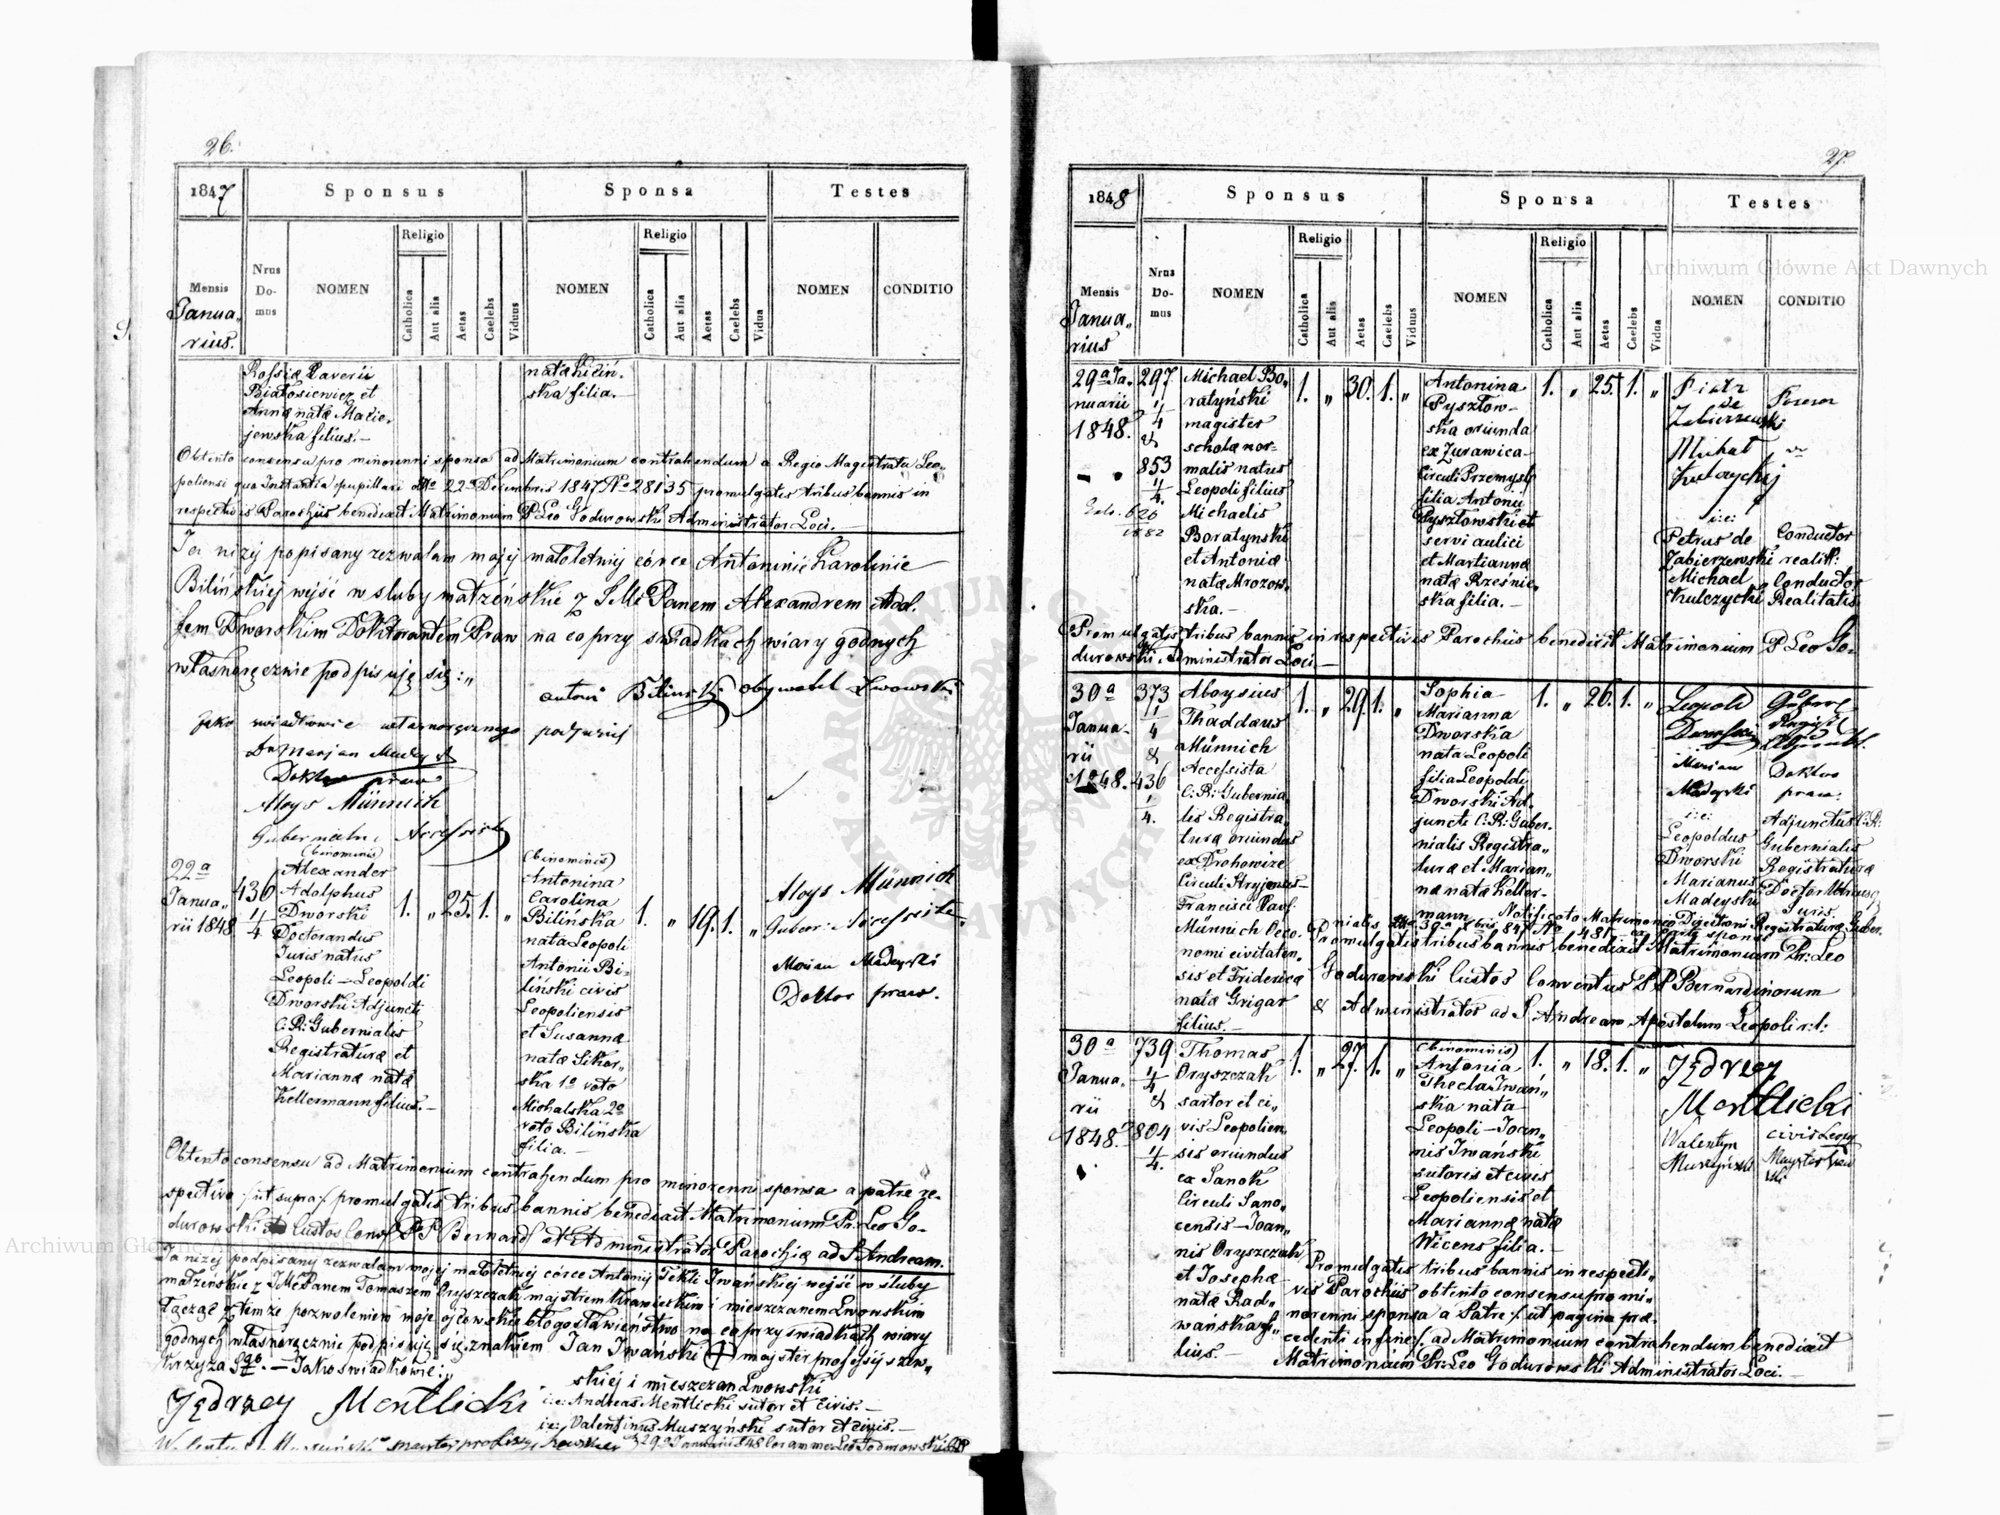 26.
1847
Sponsus
Sponsa
Testes
Mensis
Janua-
rius.
Nrus
Do-
mus
NOMEN
Religio
Catholica
Aut alia
Aetas
Caelebs
Viduus
NOMEN
Religio
Catholica
Aut alia
Aetas
Caelebs
Vidua
NOMEN
CONDITIO
Białosiewicz et
Annæ natæ Macie-
jewska filius.—
ska filia.—
Obtento consensu pro minorenni sponsa ad Matrimonium contrahendum a Regio Magistratu Leo-
poliensi qua Instantia pupillari dto 22a Decembris 1847 No 28135 promulgatis tribus bannis in
respectivis Parochiis benedixit Matrimonium P. Leo Godurowski Administrator Loci.—
Ja niżej popisany zezwalam mojej małoletniej córce Antoninie Karolinie
Bilińskiej wejść w śluby małżeńskie z JMć Panem Alexandrem Adol-
fem Dworskim Doktorantem Praw na co przy świadkach wiary godnych
własnoręcznie podpisuję się:„
Antoni Biliński obywatel Lwowski
Jako świadkowie własnoręcznego podpisu
Dr Marjan Madeyski
Doktor praw
Aloys Münnich
Gubernial. Accessista
22a
Janua-
rii 1848
436
4/4
(binominis)
Alexander
Adolphus
Dworski
Doctorandus
Juris natus
Leopoli—Leopoldi
Dworski Adjuncti
C: R: Gubernialis
Registraturæ et
Mariannæ natæ
Kellermann filius.—
1. „ 25. 1. „
(binominis)
Antonina
Carolina
Bilińska
nata Leopoli
Antonii Bi-
liński civis
Leopoliensis
et Susannæ
natæ Sikor-
ska 1o voto
Michalska 2o
voto Bilińska
filia.—
1. „ 19. 1. „
Aloys Münnich
Guber: Accessista
Marian Madeyski
Doktor praw.
Obtento consensu ad Matrimonium contrahendum pro minorenni sponsa a patre re-
spectivo /:ut supra:/ promulgatis tribus bannis benedixit Matrimonium Pr: Leo Go-
durowski Custos Conv. PP Bernard et Administrator Parochiæ ad S. Andream.
Ja niżej podpisany zezwalam mojej małoletniej córce Antonij Tekli Iwańskiej wejść w śluby
małżeńskie z JMć Panem Tomaszem Oryszczak majstrem Krawieckim i mieszczanem Lwowskim
Łącząc z temże pozwoleniem moje ojcowskie błogosławieństwo na co przy świadkach wiary
godnych własnoręcznie podpisuję się znakiem Jan Iwański + majster profesyi szew-
Krzyża Sgo.—Jako świadkowie:„
skiej i mieszczan Lwowski
Jędrzey Mentlicki
i:e: Andreas Mentlicki sutor et civis.—
i:e: Valentinus Muszyński sutor et civis.—
29a Januarii 848 coram me Leo Godurowski
27.
1848
Sponsus
Sponsa
Testes
Mensis
Janua-
rius
Nrus
Do-
mus
NOMEN
Religio
Catholica
Aut alia
Aetas
Caelebs
Viduus
NOMEN
Religio
Catholica
Aut alia
Aetas
Caelebs
Vidua
NOMEN
CONDITIO
29a Ja-
nuarii
1848.
297
4/4
&
853
4/4.
Michael Bo-
ratyński
magister
scholæ nor-
malis natus
Leopoli filius
Michaelis
Boratynski
et Antoniæ
natæ Mrozow-
ska.—
1. „ 30. 1. „
Antonina
Pyszlow-
ska oriunda
ex Żurawica
Circuli Przemysl
filia Antonii
Pyszlowski et
servi aulici
et Mariannæ
natæ Rześnie-
ska filia.—
1. „ 25. 1. „
Piotr
de
Zabierzewski
Michał
Kulczycki
i:e:
Petrus de
Zabierzewski
Michael
Kulczycki
Conductor
realit:
Conductor
Realitatis
Promulgatis tribus bannis in respectivis Parochiis benedixit Matrimonium P Leo Go-
durowski Administrator Loci—
30a
Janua-
rii
1848.
373
1/4
&
436
1/4.
Aloysius
Thaddæus
Münnich
Accessista
C: R: Gubernia-
lis Registra-
turæ oriundus
ex Drohowize
Circuli Stryjensis
Francisci Xav.
Münnich Oeco-
nomi civitaten-
sis et Fridericæ
natæ Grigar
filius.—
1. „ 29. 1. „
Sophia
Marianna
Dworska
nata Leopoli
filia Leopoldi
Dworski Ad-
juncti C: R: Guber-
nialis Registra-
turæ et Marian-
næ natæ Keller-
mann
1. „ 26. 1. „
Leopold
Dworski
Marian
Madeyski
i:e:
Leopoldus
Dworski
Marianus
Madeyski
Doktor
praw.
Adjunctus C: R:
Gubernialis
Registraturæ
Doctor Utriusq
Juris.
Notificato Matrimonio Directioni Registraturæ Guber-
nialis dto 30a Xbris 847 No 481
Promulgatis tribus bannis benedixit Matrimonium Pr: Leo
Godurowski Custos Conventus PP Bernardinorum
& Administrator ad S. Andream Apostolum Leopoli r: l:
30a
Janua-
rii
1848.
739
1/4
&
804
4/4.
Thomas
Oryszczak
sartor et ci-
vis Leopolien-
sis oriundus
ex Sanok
Circuli Sano-
censis—Joan-
nis Oryszczak
et Josephæ
natæ Rad-
wańska fi-
lius.—
1. „ 27. 1. „
(binominis)
Antonia
Thecla Iwań-
ska nata
Leopoli—Joan-
nis Iwański
sutoris et civis
Leopoliensis et
Mariannæ natæ
Wicens filia.—
1. „ 18. 1. „
Jędrzey
Mentlicki
Walentyn
Muszyński
civis Leop
Promulgatis tribus bannis in respecti-
vis Parochiis obtento consensu pro mi-
norenni sponsa a Patre /:ut pagina præ-
cedenti in fine:/ ad Matrimonium contrahendum benedixit
Matrimonium Pr: Leo Godurowski Administrator Loci.—
Archiwum Główne Akt Dawnych
Archiwum Główne Akt Dawnych
ARCHIWUM GŁÓWNE AKT DAWNYCH